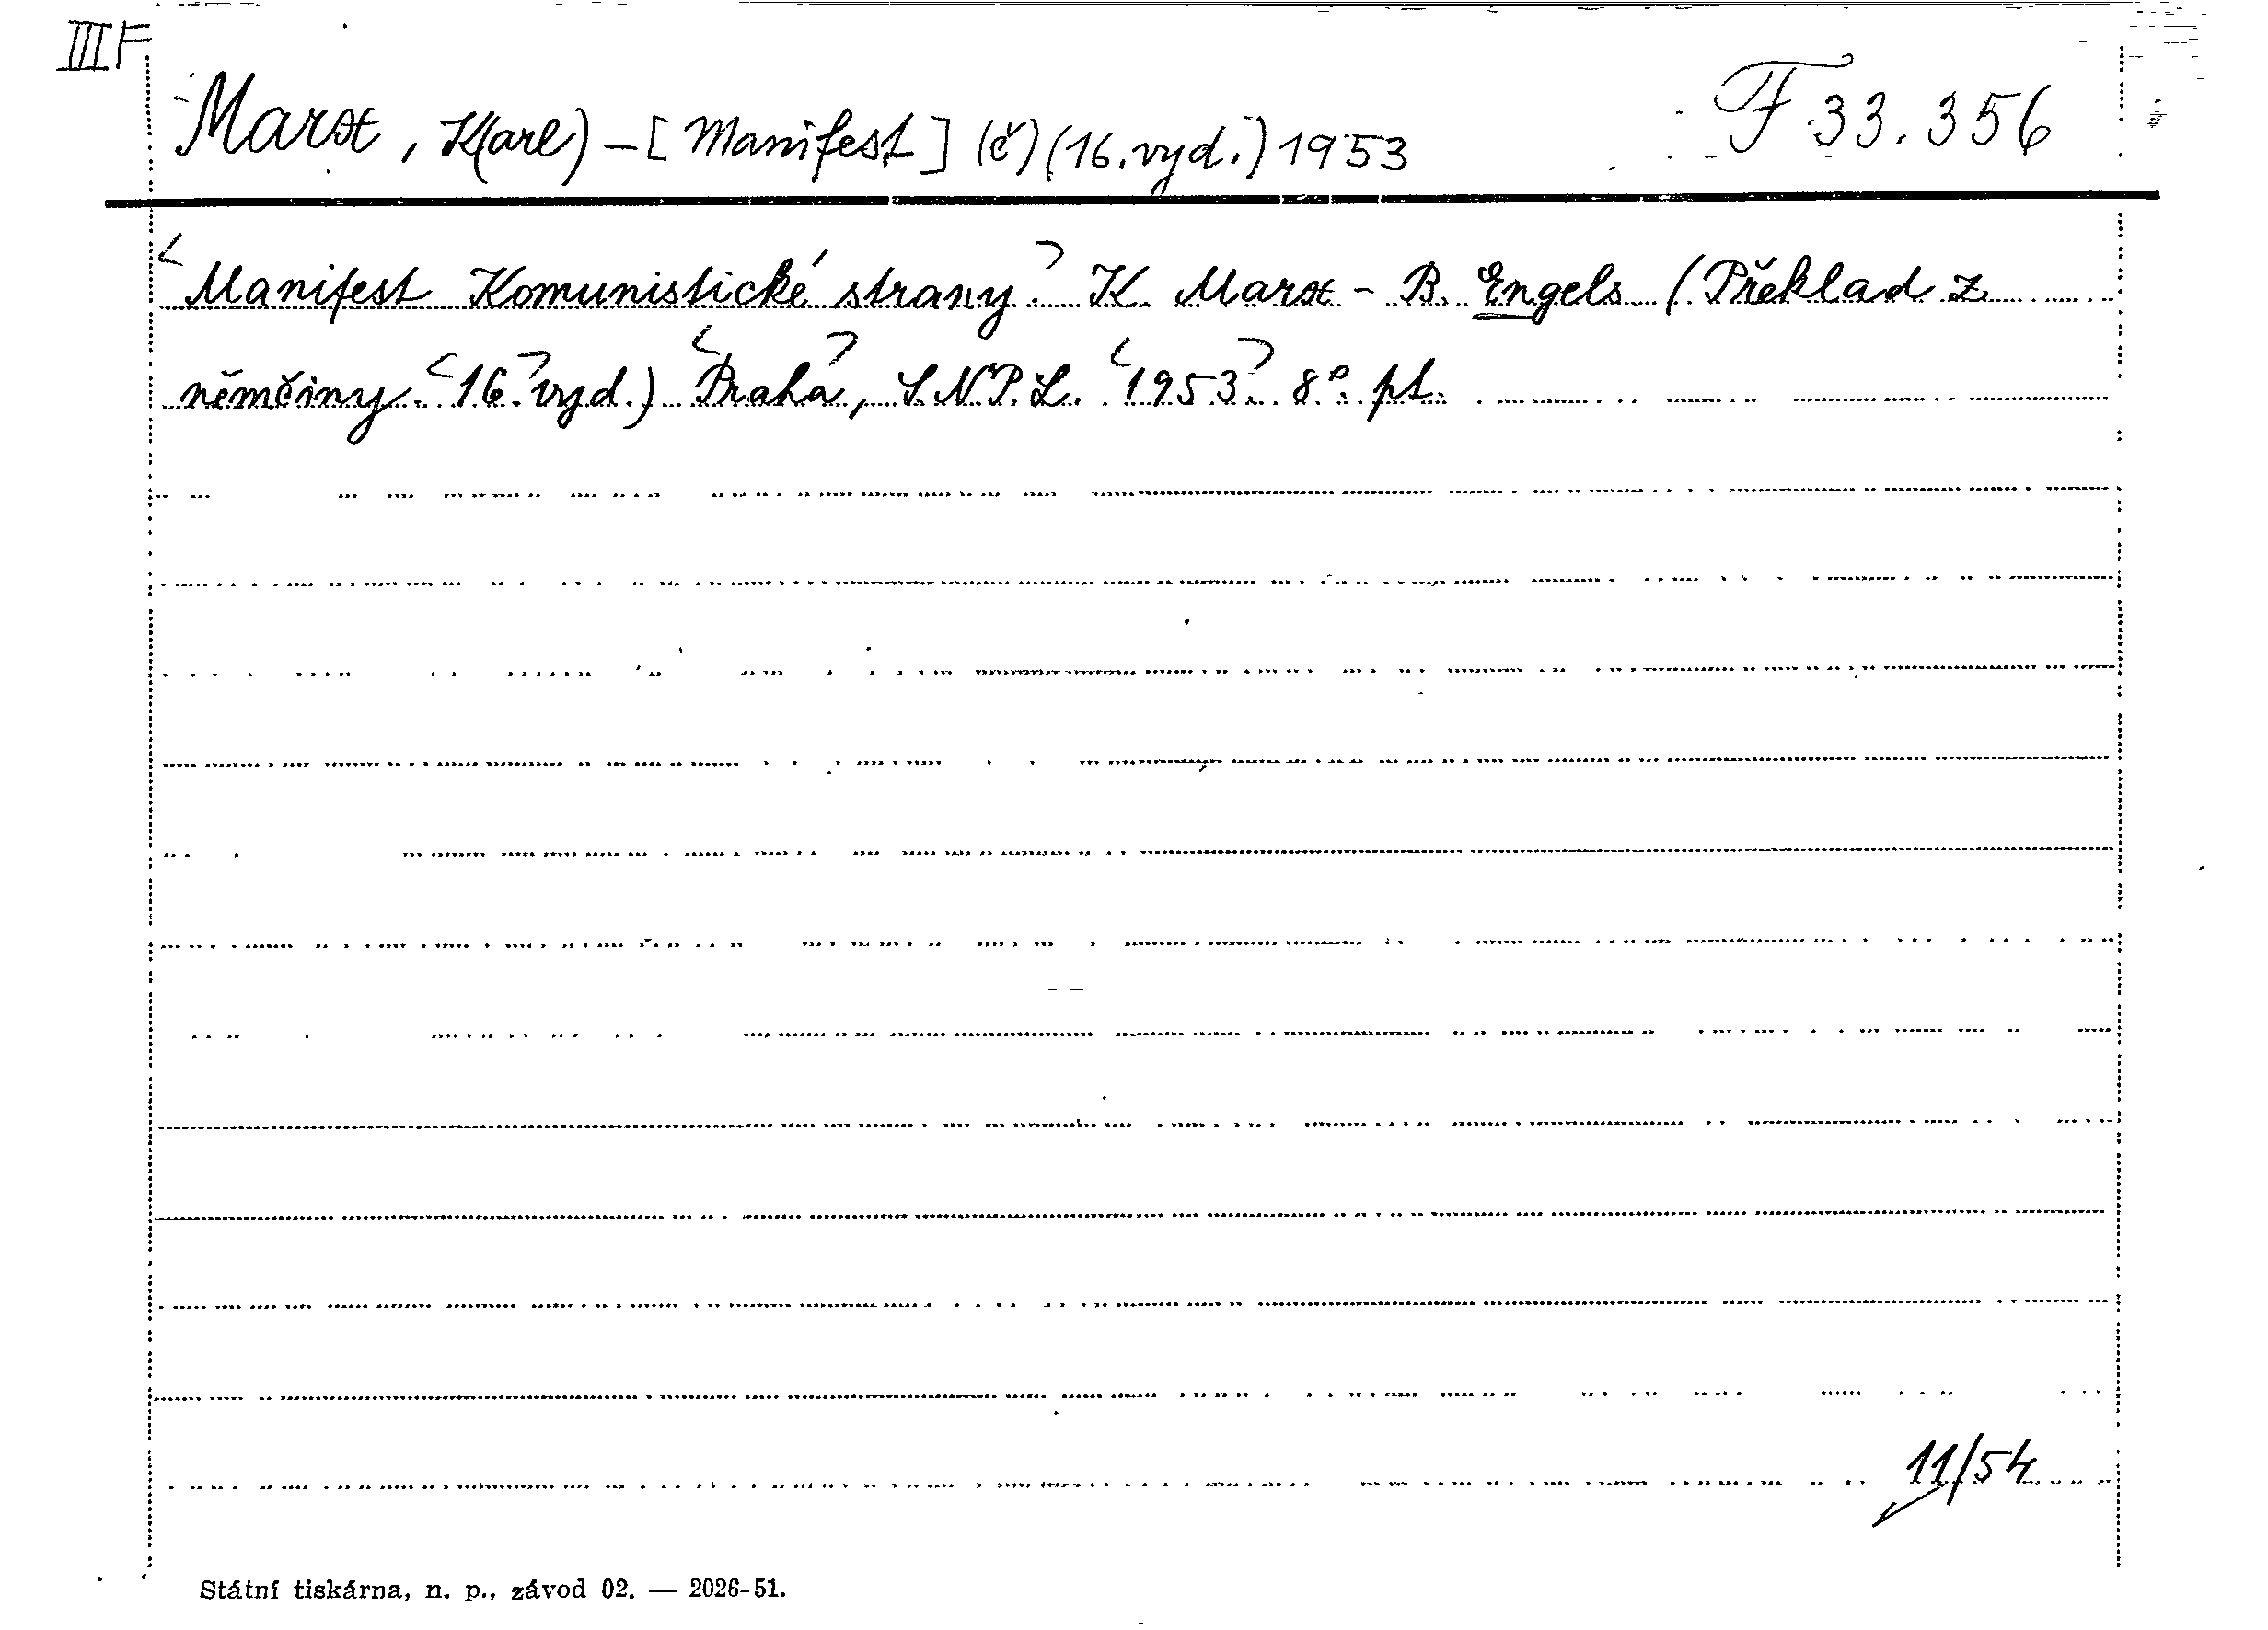 III F
Marx, K(arl) – [Manifest] (č) (16. vyd.) 1953 F 33.356
<Manifest Komunistické strany.> K. Marx - B. Engels (Překlad z
němčiny. <16.> vyd.) <Praha>, S.N.P.L. <1953>. 8°. pt.
11/54
Státní tiskárna, n. p., závod 02. — 2026-51.